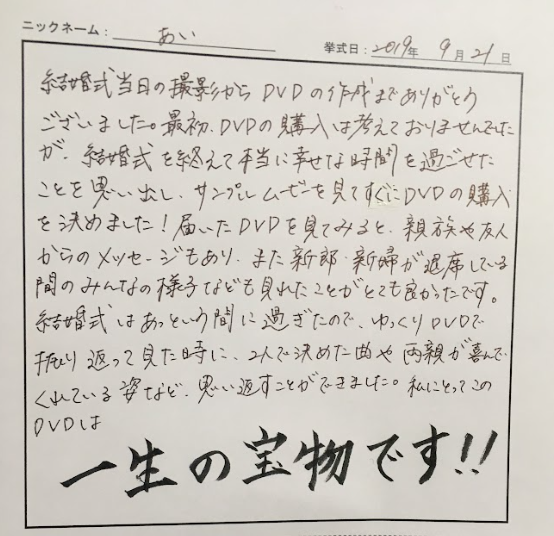 ニックネーム: あい
挙式日: 2019年 9月 21日
結婚式当日の撮影からDVDの作成までありがとう
ございました。最初、DVDの購入は考えておりませんでした
が、結婚式を終えて本当に幸せな時間を過ごせた
ことを思い出し、サンプルムービーを見てすぐにDVDの購入
を決めました!届いたDVDを見てみると、親族や友人
からのメッセージもあり、また新郎・新婦が退席している
間のみんなの様子なども見れたことがとても良かったです。
結婚式はあっという間に過ぎたので、ゆっくりDVDで
振り返って見た時に、2人で決めた曲や両親が喜んで
くれている姿など、思い返すことができました。私にとってこの
DVDは
一生の宝物です!!